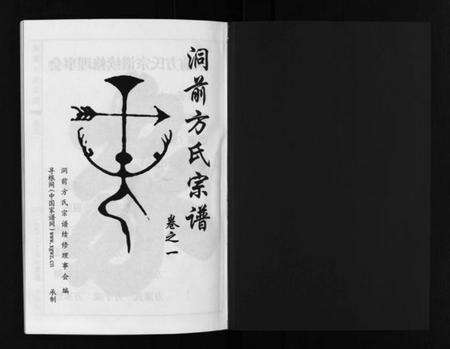 洞前方氏宗谱
卷之一
洞前方氏宗谱续修理事会 编
寻根网(中国家谱网)www.xgwz.cn 承制